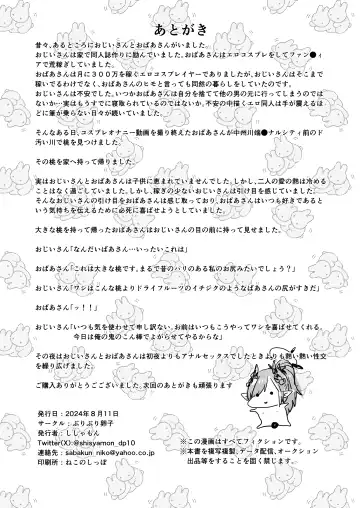 あとがき
昔々、あるところにおじいさんとおばあさんがいました。
おじいさんは家で同人誌作りに励んでいました。おばあさんはエロコスプレをしてファン●ィ
アで荒稼ぎしていました。
おばあさんは月に３００万を稼ぐエロコスプレイヤーでありましたが、おじいさんはそこまで
稼いでるわけでなく、おばあさんのヒモと言っても同然の暮らしをしているのです。
おじいさんは不安でした。いつかおばあさんは自分を捨てて他の男の元に行ってしまうのでは
ないか…実はもうすでに寝取られているのではないか、不安の中描くエロ同人は手が震えるほ
どに筆が乗らない日々が続いていました。
そんなある日、コスプレオナニー動画を撮り終えたおばあさんが中州川端●ナルシティ前のド
汚い川で桃を見つけました。
その桃を家へ持って帰りました。
実はおじいさんとおばあさんは子供に恵まれていませんでした。しかし、二人の愛の熱は冷める
ことはなく過ごしていました。しかし、稼ぎの少ないおじいさんは引け目を感じていました。
そんなおじいさんの引け目をおばあさんは感じ取っており、おばあさんはいつも好きであると
いう気持ちを伝えるために必死に喜ばせようとしていました。
大きな桃を持って帰ったおばあさんはおじいさんの目の前に持って見せました。
おじいさん「なんだいばあさん…いったいこれは」
おばあさん「これは大きな桃です、まるで昔のハリのある私のお尻みたいでしょう？」
おじいさん「ワシはこんな桃よりドライフルーツのイチジクのようなばあさんの尻がすきだ」
おばあさん「ッ！！」
おじいさん「いつも気を使わせて申し訳ない、お前はいつもこうやってワシを喜ばせてくれる。
今日は俺の鬼のこん棒でよがらせてやるからな」
その夜はおじいさんとおばあさんは初夜よりもアナルセックスでしたときよりも熱い熱い性交
を繰り広げました。
ご購入ありがとうございました、次回のあとがきも頑張ります
発行日：2024年８月11日
サークル：ぷりぷり卵子
発行者：ししゃもん
Twitter(X):@shisyamon_dp10
連絡先：sabakun_niko@yahoo.co.jp
印刷所：ねこのしっぽ
※この漫画はすべてフィクションです。
※本書を複写複製、データ配信、オークション
出品等をすることを固く禁じます。